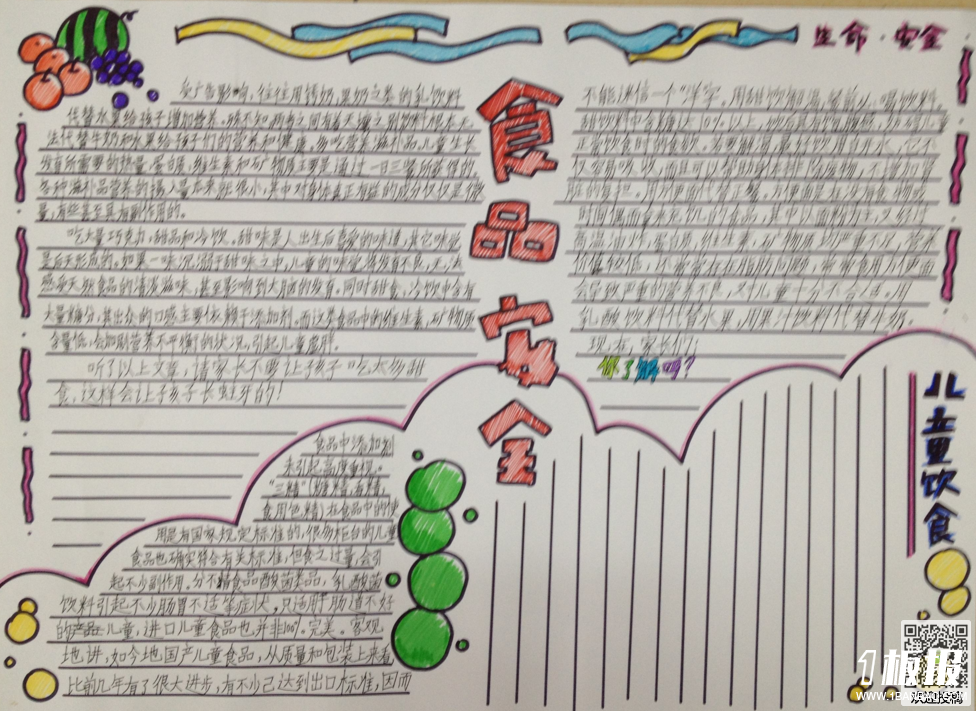 生命·安全
食品安全
受广告影响，往往用钙奶，果奶之类的乳饮料
代替水果给孩子增加营养，殊不知两者之间有天壤之别饮料根本无
法代替牛奶和水果给孩子们的营养和健康。
发育所需要的热量，蛋白质，维生素和矿物质主要是通过一日三餐所获得的。
量，有些甚至具有副作用的。
吃大量巧克力，甜品和冷饮。甜味是人出生后喜爱的味道，其它味觉
是后天形成的。如果一味沉溺于甜味之中，儿童的味觉将发育不良，无法
感受天然食品的清淡滋味，甚至影响到大脑的发育。同时甜食，冷饮中含有
大量糖分，其出众的口感主要依赖于添加剂。而这类食品中的维生素，矿物质
含量低，会加剧营养不平衡的状况，引起儿童
听了以上文章，请家长不要让孩子吃太多甜
食，这样会让孩子长蛀牙的！
食品中添加剂
未引起高度重视。
“三精”（糖精，香精，
食用色精）在食品中的使
用是有国家规定标准的，很多柜台的儿童
食品也确实符合有关标准，但食之过量，会引
起不少副作用。分不精食品酸菌类品，乳酸菌
饮料引起不少肠胃不适等症状，只适用肠道不好
的产品儿童，进口儿童食品也并非100%完美。客观
地讲，如今地国产儿童食品，从质量和包装上来看
比前几年有了很大进步，有不少已达到出口标准，因而
不能迷信一个“洋”字。用甜饮解渴，餐前必喝饮料。
甜饮料中含糖达10%以上，
正常饮食时的食欲。若要解渴，最好饮用白开水，它不
仅容易吸收，而且可以帮助身体排除废物，不增加肾
脏的负担。用方便面代替正餐。方便面是在没有食物或
时间偶而拿来充饥的食品，其中以面粉为主，又经
高温油炸，蛋白质，维生素，矿物质均严重不足，营养
价值较低，还常常存在脂肪问题，常常食用方便面
会导致严重的营养不良，对儿童十分不合适。用
乳酸饮料代替水果，用果汁饮料代替牛奶。
现在，家长们！
你了解吗？
儿童饮食
1板报
WWW.1BANBAO.COM
欢迎投稿